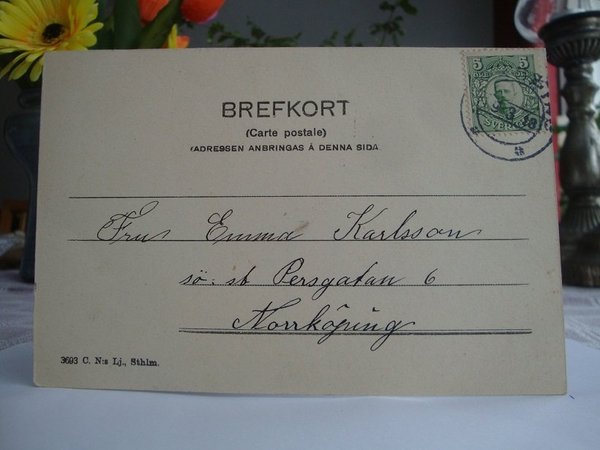 BREFKORT
(Carte postale)
(ADRESSEN ANBRINGAS Å DENNA SIDA
5 5
SVERIGE
Fru Emma Karlsson
sö. st Persgatan 6
Norrköping
3693 C. N:s Lj., Sthlm.